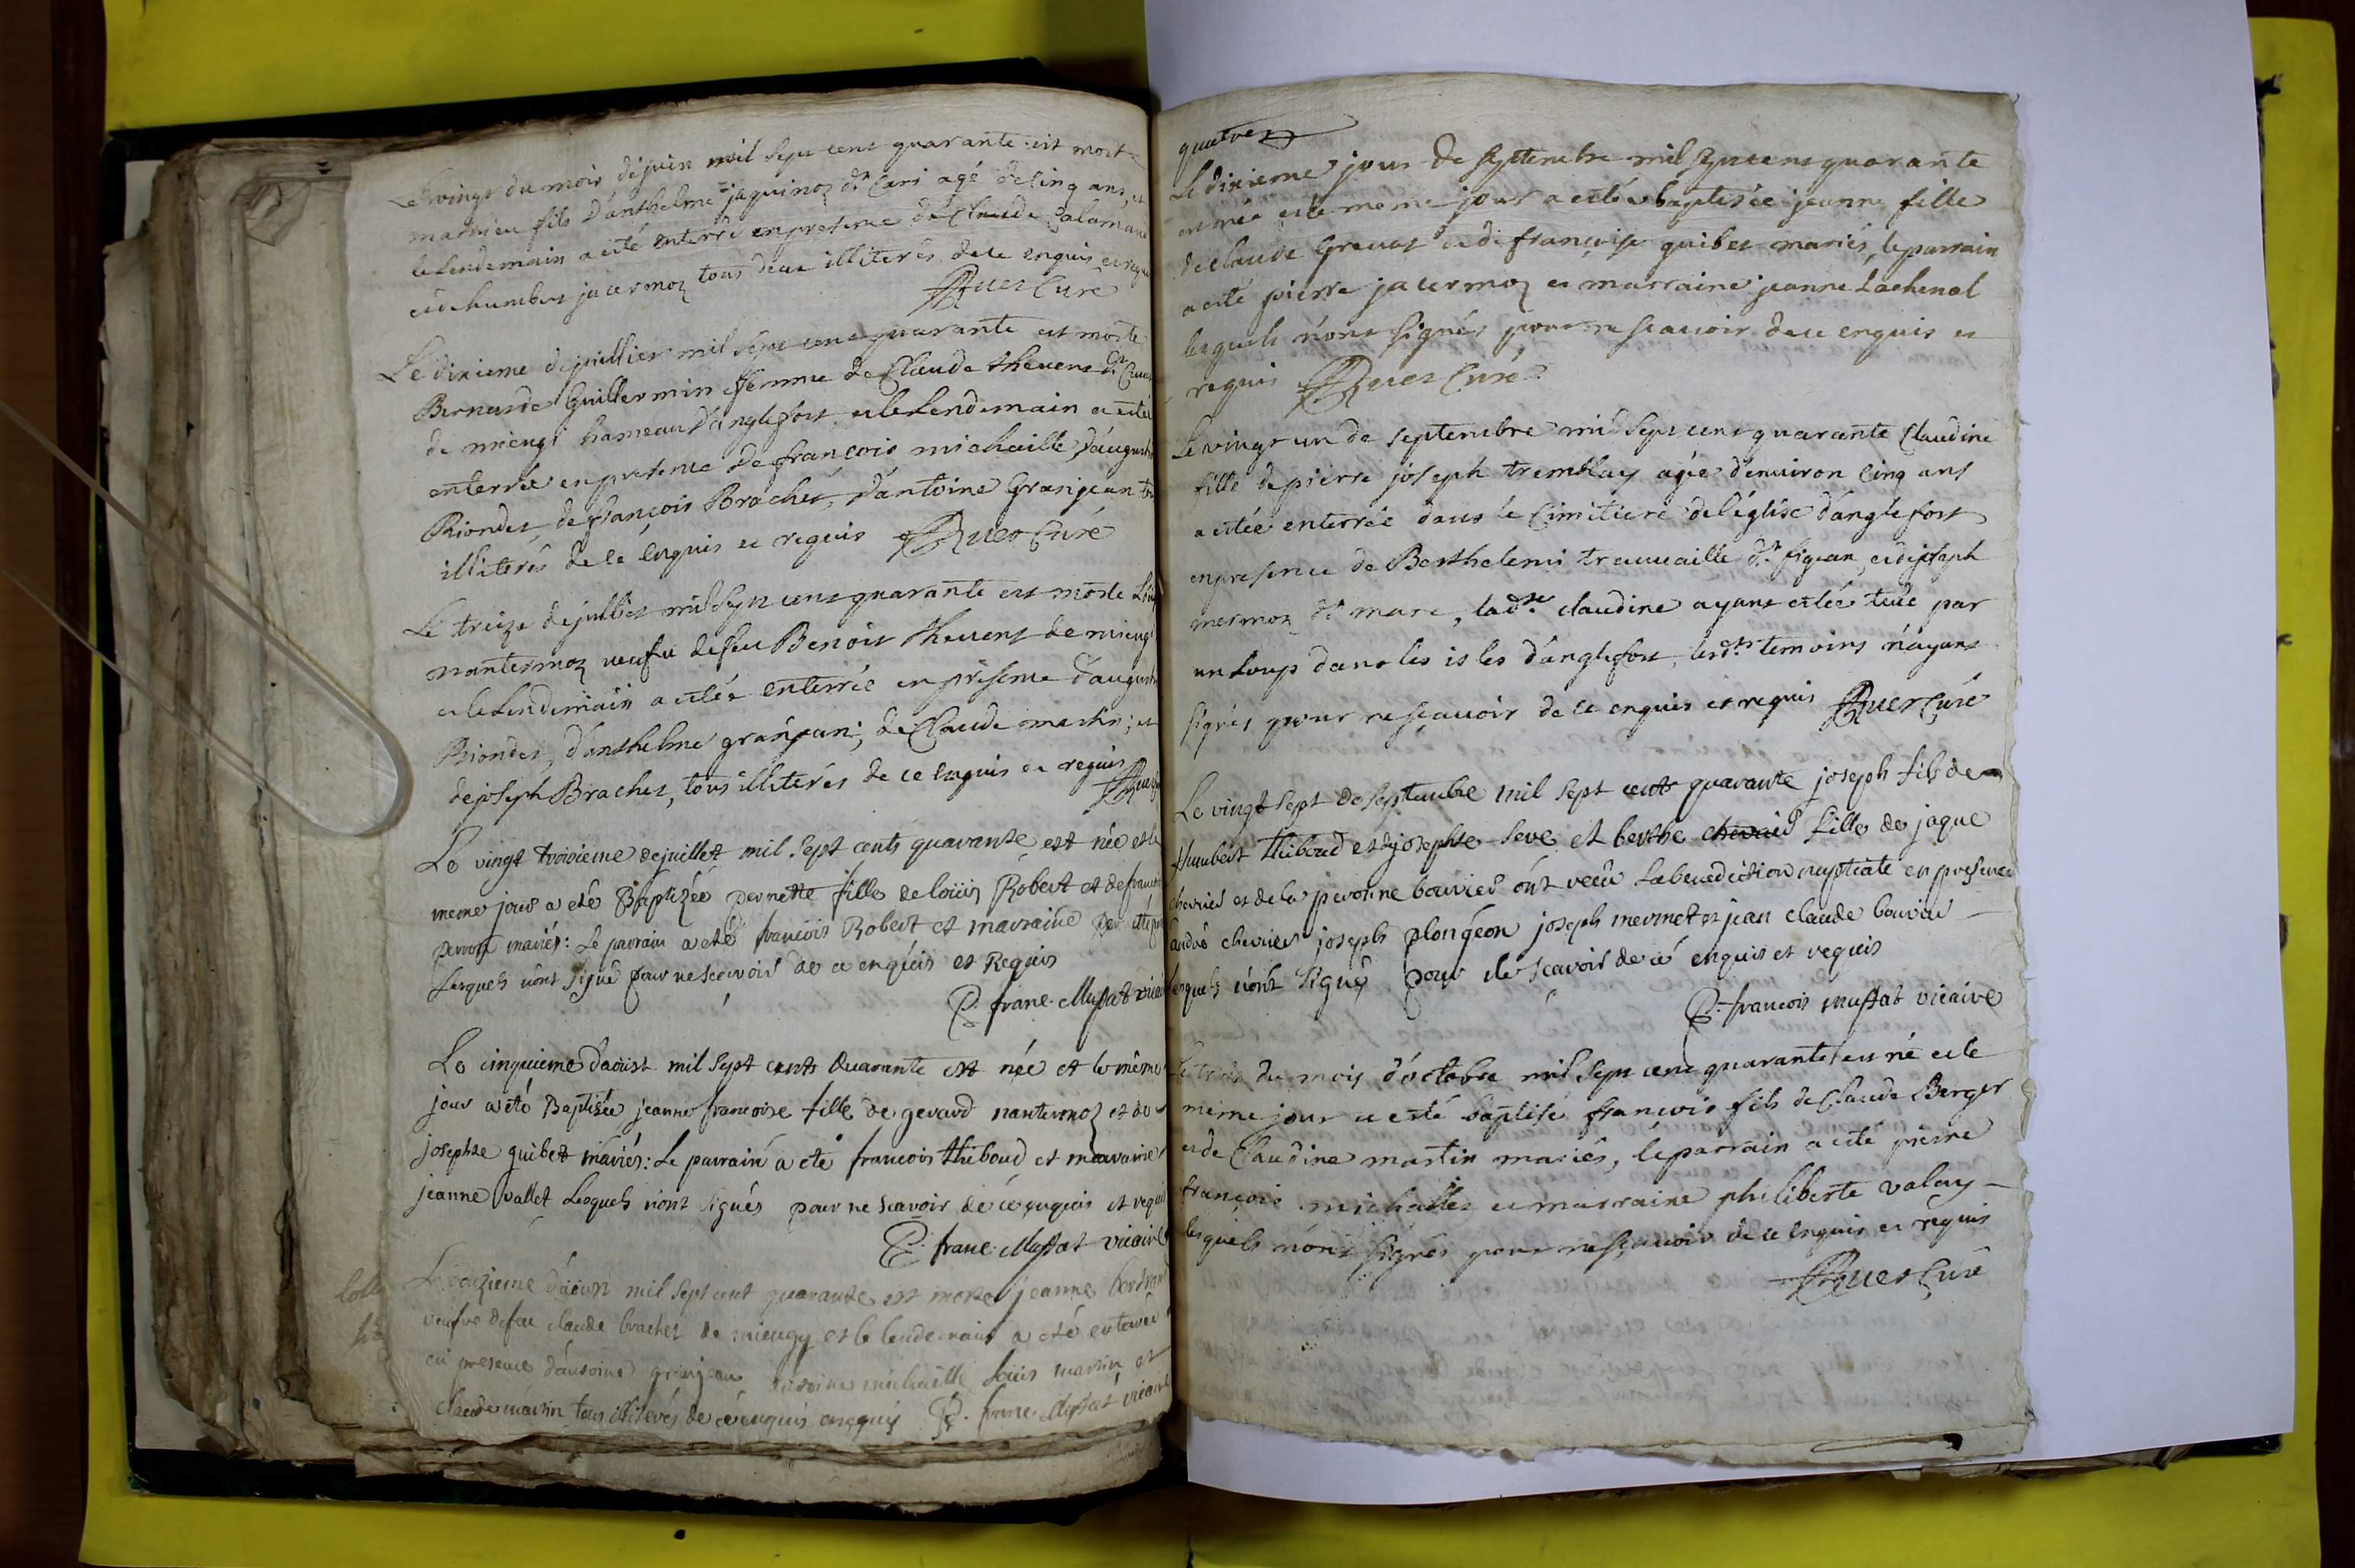 Le vingt du mois de juin mil sept cent quarante est mort
mathieu fils d'anthelme jaquinoz de agé de cinq ans, et
le lendemain a eté enterré en presence de Claude
et de humbert jacermoz tous deux illiterés de ce enquis et requis
Curé
Le dixieme de juillier mil sept cent quarante est morte
Bernarde Guillermin femme de Claude thevent
de miengi hameau d'anglefort et le lendemain a estée
enterrée en presence de françois michaille, d'augustin
Riondet, de françois Brachet, d'antoine Granjean
illiterés de ce enquis et requis Curé
Le treize de julliet mil sept cent quarante est morte
nantermoz veufve de feu Benoit thevent de miengi
et le lendemain a estée enterrée en presence d'augustin
Riondet, d'anthelme granjean; de Claude martin; et
de joseph Brachet, tous illiterés de ce enquis et requis
Le vingt troisieme de juillet mil sept cents quarante est née et le
meme jour a eté Baptizée pernette fille de loüis Robert et de francoise
perron mariés: Le parrain a eté francois Robert et marraine
Lesquels n'ont signé pour ne scavoir de ce enquis et Requis
P. franc. Muffat vicaire
Le cinquieme d'aoust mil sept cents Quarante est née et le même
jour a eté Baptisée jeanne francoise fille de gerard nantermoz et de
josephte quibet mariés: Le parrain a eté francois thiboud et marraine
jeanne vallet Lesquels n'ont signés pour ne scavoir de ce enquis et requis
P. franc. Muffat vicaire
Le d'aoust mil sept cent quarante est morte jeanne
veufve de feu claude brachet de miengy et le lendemain a eté enterrée
en presence d'antoine granjean antoine michaille Loüis martin et
claude martin tous illiterés de ce enquis et requis P. franc. Muffat vicaire
quatre
Le dixieme jour de septembre mil sept cent quarante
est née et le meme jour a estée baptisée jeanne fille
de claude Grevat et de françoise quibet mariés, le parrain
a esté pierre jacermoz et marraine jeanne Lachenal
lesquels n'ont signés pour ne scavoir de ce enquis et
requis Curé
Le vingt un de septembre mil sept cent quarante Claudine
fille de pierre joseph tremblay agée d'environ cinq ans
a estée enterrée dans le Cimitiere de l'église d'anglefort
en presence de Berthelemi travvaille de figean, et de joseph
mermoz de mare, lad.te claudine ayant estée tuée par
un Loup dans les isles d'anglefort, lesd.ts temoins n'ayant
signés pour ne sçavoir de ce enquis et requis Curé
Le vingt sept de septembre mil sept cent quarante joseph fils de
humbert thiboud et de josephte seve et berthe chevrier fille de jaque
chevrier et de la pernonne bouvier ont receu La benediction nuptiale en presence
andré chevrier joseph plongeon joseph mermet et jean claude bouvier
lesquels n'ont signé pour ne scavoir de ce enquis et requis
P. francois muffat vicaire
Le trois du mois d'octobre mil sept cent quarante est né et le
même jour a esté baptisé françois fils de Claude Berger
et de Claudine martin mariés, le parrain a esté pierre
françois michallet et marraine philiberte valay
lesquels n'ont signés pour ne sçavoir de ce enquis et requis
Curé